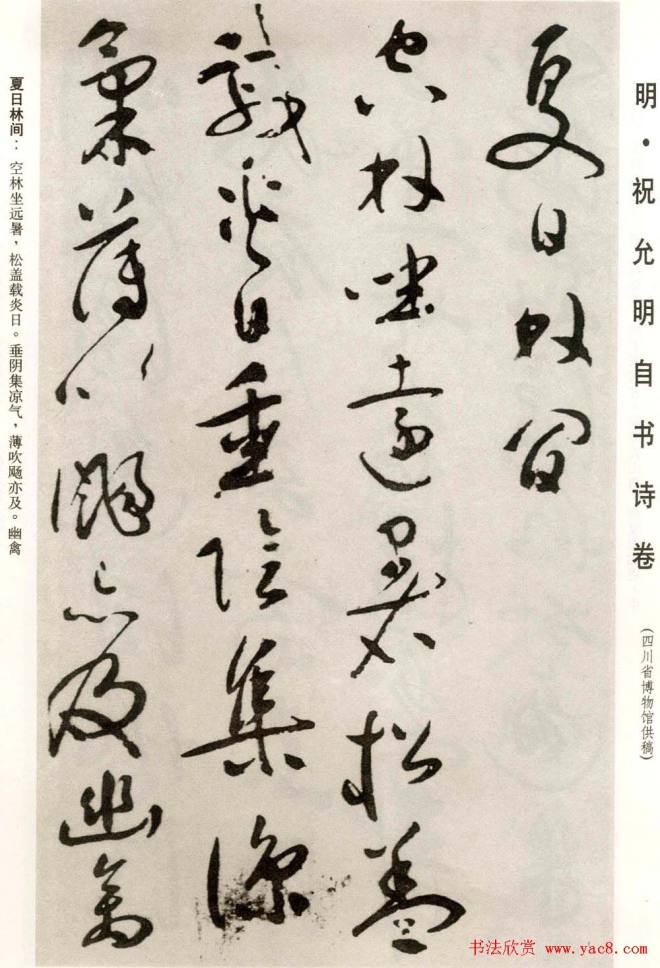 明·祝允明自书诗卷
(四川省博物馆供稿)
夏日林间
空林坐远暑松盖
载炎日垂阴集凉
气薄吹飏亦及幽禽
夏日林间：空林坐远暑，松盖载炎日。垂阴集凉气，薄吹飏亦及。幽禽
书法欣赏 www.yac8.com